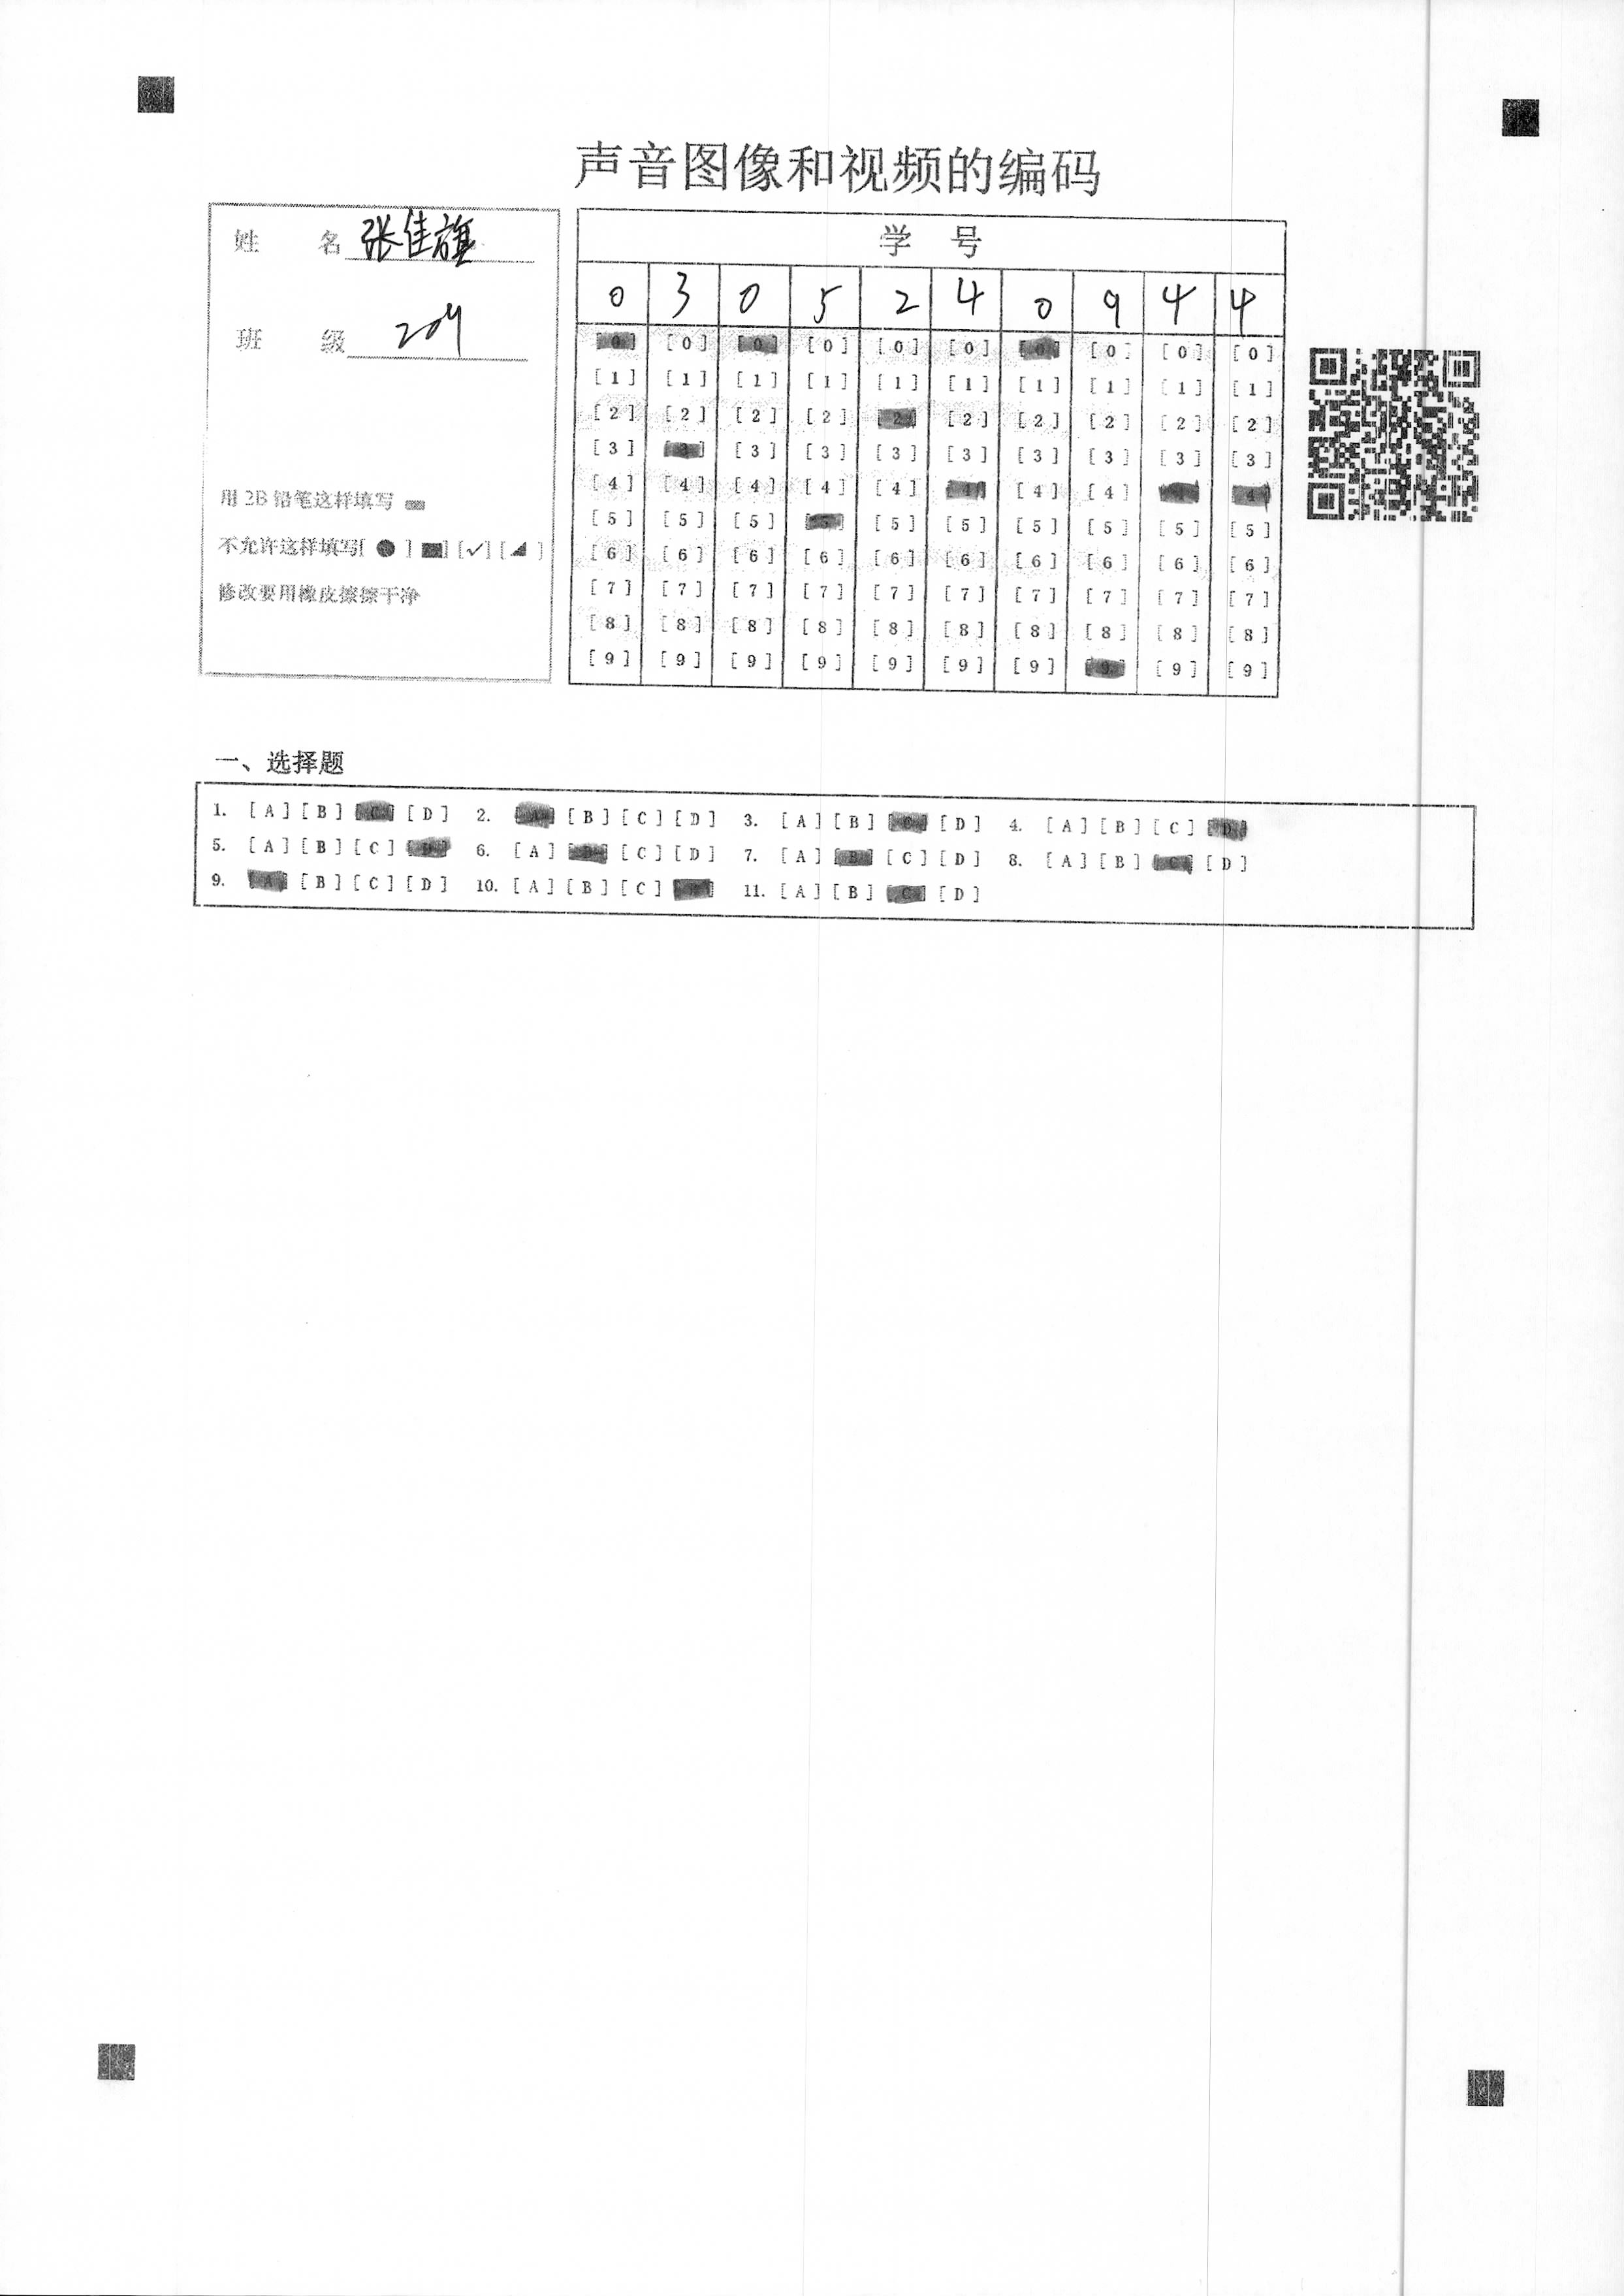 声音图像和视频的编码
姓 名 张佳旗
班 级 204
用 2B 铅笔这样填写
不允许这样填写[ ● ] ■] [✓] [◢ ]
修改要用橡皮擦擦干净
学 号
0 3 0 5 2 4 0 9 4 4
[0] [0] [0] [0] [0] [0] [0] [0] [0] [0]
[1] [1] [1] [1] [1] [1] [1] [1] [1] [1]
[2] [2] [2] [2] [2] [2] [2] [2] [2] [2]
[3] [3] [3] [3] [3] [3] [3] [3] [3] [3]
[4] [4] [4] [4] [4] [4] [4] [4] [4] [4]
[5] [5] [5] [5] [5] [5] [5] [5] [5] [5]
[6] [6] [6] [6] [6] [6] [6] [6] [6] [6]
[7] [7] [7] [7] [7] [7] [7] [7] [7] [7]
[8] [8] [8] [8] [8] [8] [8] [8] [8] [8]
[9] [9] [9] [9] [9] [9] [9] [9] [9] [9]
一、选择题
1. [A] [B] [C] [D] 2. [A] [B] [C] [D] 3. [A] [B] [C] [D] 4. [A] [B] [C] [D]
5. [A] [B] [C] [D] 6. [A] [B] [C] [D] 7. [A] [B] [C] [D] 8. [A] [B] [C] [D]
9. [A] [B] [C] [D] 10. [A] [B] [C] [D] 11. [A] [B] [C] [D]